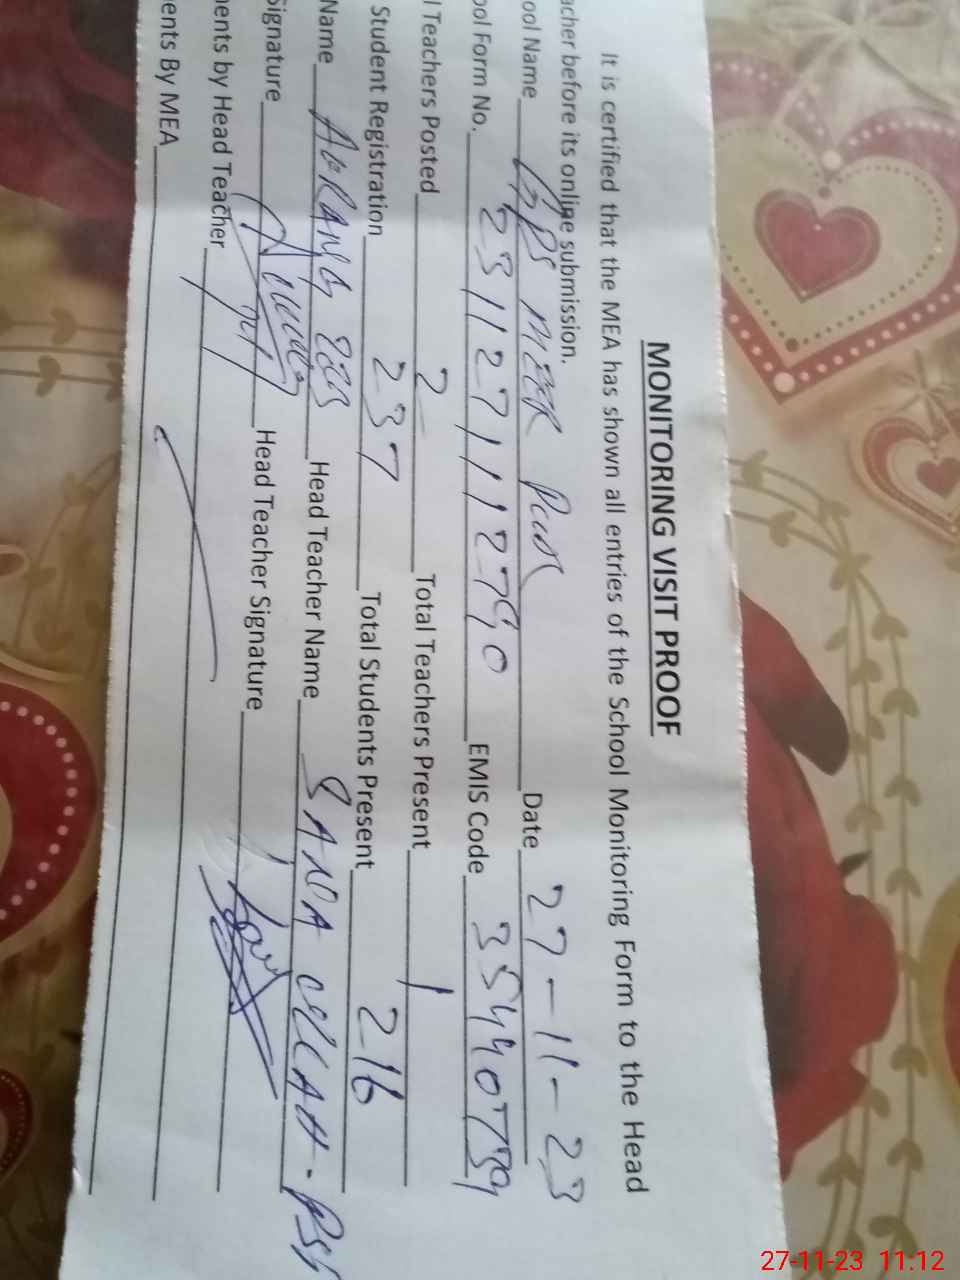 MONITORING VISIT PROOF
It is certified that the MEA has shown all entries of the School Monitoring Form to the Head
acher before its online submission.
ool Name GPS Date 27-11-23
ool Form No. 2311271112790 EMIS Code
l Teachers Posted 2 Total Teachers Present 1
Student Registration 237 Total Students Present 216
Name AURANG ZEB Head Teacher Name SANA ULLAH - PST
Signature Head Teacher Signature
ents by Head Teacher
ents By MEA
27-11-23 11:12